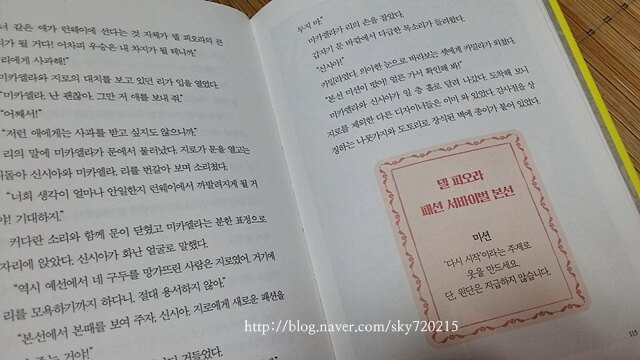 너 같은 애가 런웨이에 선다는 것 자체가 델 피오라의 큰
가 될 거다! 어차피 우승은 내 차지가 될 테니까."
리에게 사과해!"
미카엘라와 지로의 대치를 보고 있던 리가 입을 열었다.
"미카엘라, 난 괜찮아. 그만 저 애를 보내 줘."
"어째서!"
"저런 애에게는 사과를 받고 싶지도 않으니까."
리의 말에 미카엘라가 문에서 물러났다. 지로가 문을 열고는
돌아 신시아와 미카엘라, 리를 번갈아 보며 소리쳤다.
"너희 생각이 얼마나 안일한지 런웨이에서 까발려지게 될 거
야! 기대하지."
커다란 소리와 함께 문이 닫혔고 미카엘라는 분한 표정으로
자리에 앉았다. 신시아가 화난 얼굴로 말했다.
"역시 예선에서 네 구두를 망가뜨린 사람은 지로였어. 거기에
리를 모욕하기까지 하다니. 절대 용서하지 않아."
"본선에서 본때를 보여 주자, 신시아. 지로에게 새로운 패션을
주는 거야!"
두지 마."
미카엘라가 리의 손을 잡았다.
갑자기 문 바깥에서 다급한 목소리가 들려왔다.
"신시아!"
카밀라였다. 의아한 눈으로 바라보는 셋에게 카밀라가 외쳤다.
"본선 미션이 떴어! 얼른 가서 확인해 봐!"
미카엘라와 신시아가 일 층 홀로 달려 나갔다. 도착해 보니
지로를 제외한 다른 디자이너들은 이미 와 있었다. 감사절을 상
징하는 나뭇가지와 도토리로 장식된 벽에 종이가 붙어 있었다.
델 피오라
패션 서바이벌 본선
미션
'다시 시작'이라는 주제로
옷을 만드세요.
단, 원단은 지급하지 않습니다.
115
http://blog.naver.com/sky720215